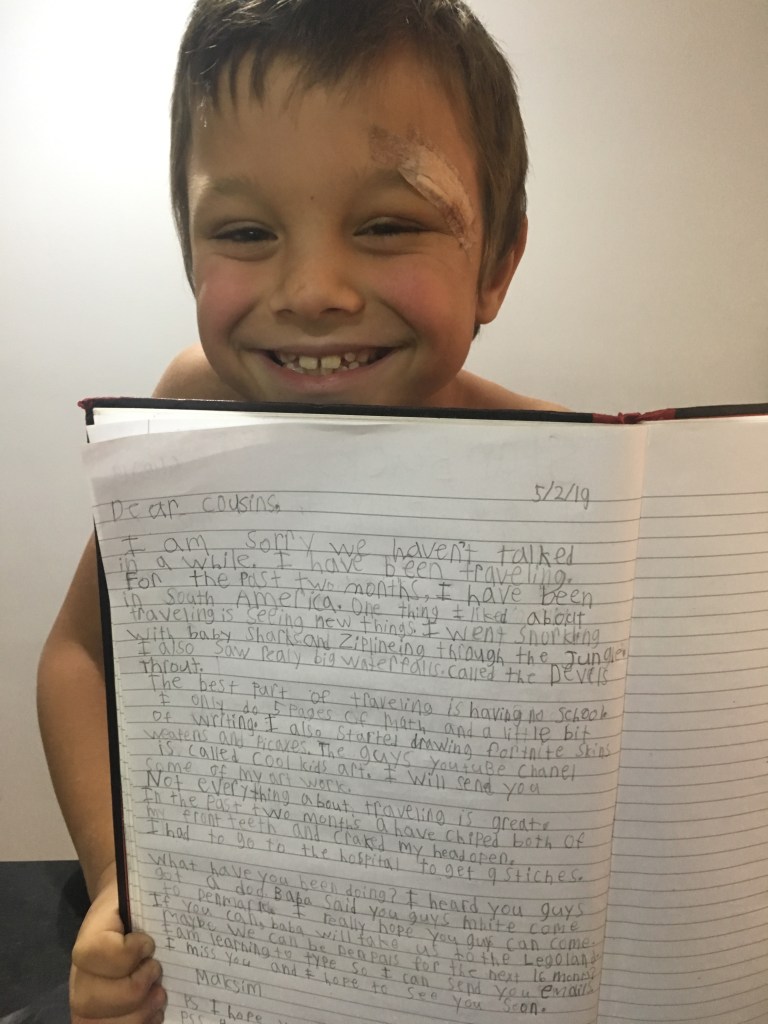 5/2/19
Dear cousins,
I am sorry we haven't talked
in a while. I have been traveling.
For the past two months, I have been
in South America. One thing I liked about
traveling is seeing new things. I went snorkling
with baby sharks and Ziplineing through the Jungle
I also saw realy big waterfalls. called the Devels
Throut.
The best part of traveling is having no school
I only do 5 pages of math and a little bit
of writing. I also started drawing fortnite skins
weatens and picaxes. The guys youtube chanel
is called cool kids art. I will send you
some of my art work.
Not everything about traveling is great.
In the past two months a have chiped both of
my front teeth and craked my head open.
I had to go to the hospital to get 9 stiches.
What have you been doing? I heard you guys
got a dog. Baba said you guys mhite come
to Denmark. I really hope you guy can come.
If you can, baba will take us to the Legoland
Maybe we can be penpals for the next 16 months
I am learning to type so I can send you emails
I miss you and I hope to see you soon.
Maksim
Ps I hope